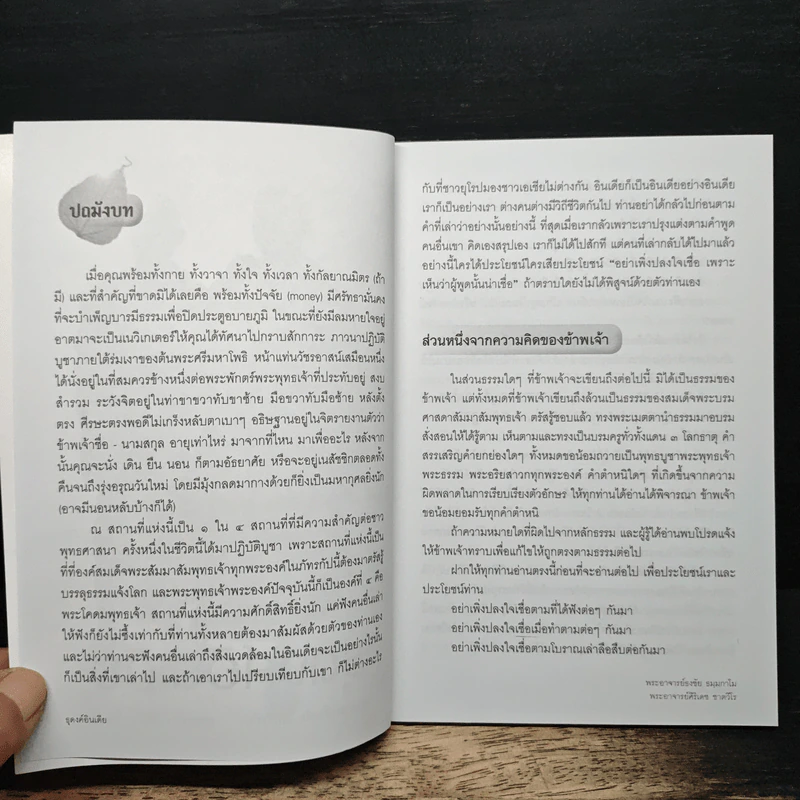 ปฐมังบท
เมื่อคุณพร้อมทั้งกาย ทั้งวาจา ทั้งใจ ทั้งเวลา ทั้งกัลยาณมิตร (ถ้า
มี) และที่สำคัญที่ขาดมิได้เลยคือ พร้อมทั้งปัจจัย (money) มีศรัทธามั่นคง
ที่จะบำเพ็ญบารมีธรรมเพื่อปิดประตูอบายภูมิ ในขณะที่ยังมีลมหายใจอยู่
อาตมาจะเป็นเนวิเกเตอร์ให้คุณได้ทัศนาไปกราบสักการะ ภาวนาปฏิบัติ
บูชาภายใต้ร่มเงาของต้นพระศรีมหาโพธิ หน้าแท่นวัชรอาสน์เสมือนหนึ่ง
ได้นั่งอยู่ในที่สมควรข้างหนึ่งต่อพระพักตร์พระพุทธเจ้าที่ประทับอยู่ สงบ
สำรวม ระวังจิตอยู่ในท่าขาขวาทับขาซ้าย มือขวาทับมือซ้าย หลังตั้ง
ตรง ศีรษะตรงพอดีไม่เกร็งหลับตาเบาๆ อธิษฐานอยู่ในจิตรายงานตัวว่า
ข้าพเจ้าชื่อ - นามสกุล อายุเท่าไหร่ มาจากที่ไหน มาเพื่ออะไร หลังจาก
นั้นคุณจะนั่ง เดิน ยืน นอน ก็ตามอัธยาศัย หรือจะอยู่เนสัชชิกตลอดทั้ง
คืนจนถึงรุ่งอรุณวันใหม่ โดยมีมุ้งกลดมากางด้วยก็ยิ่งเป็นมหากุศลยิ่งนัก
(อาจมีนอนหลับบ้างก็ได้)
ณ สถานที่แห่งนี้เป็น ๑ ใน ๔ สถานที่ที่มีความสำคัญต่อชาว
พุทธศาสนา ครั้งหนึ่งในชีวิตนี้ได้มาปฏิบัติบูชา เพราะสถานที่แห่งนี้เป็น
ที่ที่องค์สมเด็จพระสัมมาสัมพุทธเจ้าทุกพระองค์ในภัทรกัปนี้ต้องมาตรัสรู้
บรรลุธรรมแจ้งโลก และพระพุทธเจ้าพระองค์ปัจจุบันนี้ก็เป็นองค์ที่ ๔ คือ
พระโคดมพุทธเจ้า สถานที่แห่งนี้มีความศักดิ์สิทธิ์ยิ่งนัก แค่ฟังคนอื่นเล่า
ให้ฟังก็ยังไม่ซึ้งเท่ากับที่ท่านทั้งหลายต้องมาสัมผัสด้วยตัวของท่านเอง
และไม่ว่าท่านจะฟังคนอื่นเล่าถึงสิ่งแวดล้อมในอินเดียจะเป็นอย่างไรนั้น
ก็เป็นสิ่งที่เขาเล่าไป และถ้าเอาเราไปเปรียบเทียบกับเขา ก็ไม่ต่างอะไร
ธุดงค์อินเดีย
กับที่ชาวยุโรปมองชาวเอเชียไม่ต่างกัน อินเดียก็เป็นอินเดียอย่างอินเดีย
เราก็เป็นอย่างเรา ต่างคนต่างมีวิถีชีวิตกันไป ท่านอย่าได้กลัวไปก่อนตาม
คำที่เล่าว่าอย่างนั้นอย่างนี้ ที่สุดเมื่อเรากลัวเพราะเราปรุงแต่งตามคำพูด
คนอื่นเขา คิดเองสรุปเอง เราก็ไม่ได้ไปสักที แต่คนที่เล่ากลับได้ไปมาแล้ว
อย่างนี้ใครได้ประโยชน์ใครเสียประโยชน์ "อย่าเพิ่งปลงใจเชื่อ เพราะ
เห็นว่าผู้พูดนั้นน่าเชื่อ" ถ้าตราบใดยังไม่ได้พิสูจน์ด้วยตัวท่านเอง
ส่วนหนึ่งจากความคิดของข้าพเจ้า
ในส่วนธรรมใดๆ ที่ข้าพเจ้าจะเขียนถึงต่อไปนี้ มิได้เป็นธรรมของ
ข้าพเจ้า แต่ทั้งหมดที่ข้าพเจ้าเขียนถึงล้วนเป็นธรรมของสมเด็จพระบรม
ศาสดาสัมมาสัมพุทธเจ้า ตรัสรู้ชอบแล้ว ทรงพระเมตตานำธรรมมาอบรม
สั่งสอนให้ได้รู้ตาม เห็นตามและทรงเป็นบรมครูทั่วทั้งแดน ๓ โลกธาตุ คำ
สรรเสริญคำยกย่องใดๆ ทั้งหมดขอน้อมถวายเป็นพุทธบูชาพระพุทธเจ้า
พระธรรม พระอริยสาวกทุกพระองค์ คำตำหนิใดๆ ที่เกิดขึ้นจากความ
ผิดพลาดในการเรียบเรียงตัวอักษร ให้ทุกท่านได้อ่านได้พิจารณา ข้าพเจ้า
ขอน้อมยอมรับทุกคำตำหนิ
ถ้าความหมายใดที่ผิดไปจากหลักธรรม และผู้รู้ได้อ่านพบโปรดแจ้ง
ให้ข้าพเจ้าทราบเพื่อแก้ไขให้ถูกตรงตามธรรมต่อไป
ฝากให้ทุกท่านอ่านตรงนี้ก่อนที่จะอ่านต่อไป เพื่อประโยชน์เราและ
ประโยชน์ท่าน
อย่าเพิ่งปลงใจเชื่อตามที่ได้ฟังต่อๆ กันมา
อย่าเพิ่งปลงใจเชื่อเมื่อทำตามต่อๆ กันมา
อย่าเพิ่งปลงใจเชื่อตามโบราณเล่าลือสืบต่อกันมา
พระอาจารย์ธงชัย ธมฺมกาโม
พระอาจารย์ศิริเดช ชาตวีโร